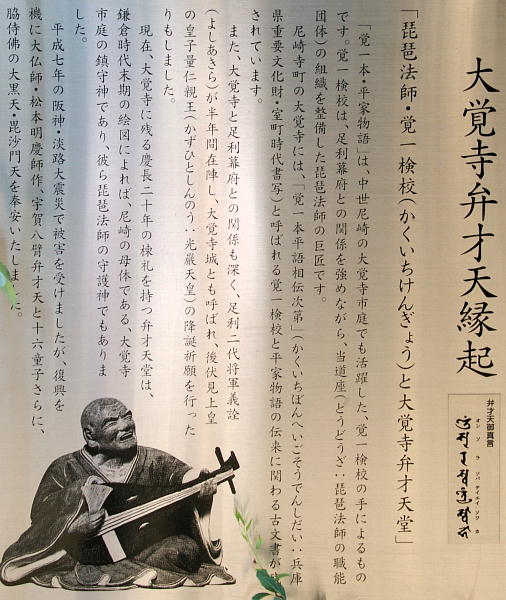 大覚寺弁才天縁起
弁才天御真言
オン ソ ラ ソバ テイエイ ソワ カ
「琵琶法師・覚一検校(かくいちけんぎょう)と大覚寺弁才天堂」
「覚一本・平家物語」は、中世尼崎の大覚寺市庭でも活躍した、覚一検校の手によるもの
です。覚一検校は、足利幕府との関係を強めながら、当道座(とうどうざ:琵琶法師の職能
団体)の組織を整備した琵琶法師の巨匠です。
尼崎寺町の大覚寺には、「覚一本平語相伝次第」(かくいちぼんへいごそうでんしだい:兵庫
県重要文化財・室町時代書写)と呼ばれる覚一検校と平家物語の伝来に関わる古文書が
されています。
また、大覚寺と足利幕府との関係も深く、足利二代将軍義詮
(よしあきら)が半年間在陣し、大覚寺城とも呼ばれ、後伏見上皇
の皇子量仁親王(かずひとしんのう:光厳天皇)の降誕祈願を行った
りもしました。
現在、大覚寺に残る慶長二十年の棟札を持つ弁才天堂は、
鎌倉時代末期の絵図によれば、尼崎の母体である、大覚寺
市庭の鎮守神であり、彼ら琵琶法師の守護神でもありま
した。
平成七年の阪神・淡路大震災で被害を受けましたが、復興を
機に大仏師・松本明慶師作、宇賀八臂弁才天と十六童子さらに、
脇侍佛の大黒天・毘沙門天を奉安いたしました。